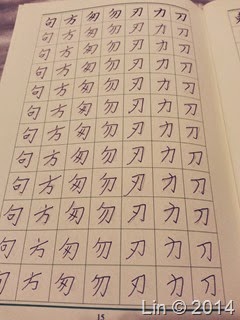 刀刀刀刀刀刀刀刀刀刀刀刀
力力力力力力力力力力力力
刃刃刃刃刃刃刃刃刃刃刃刃
勿勿勿勿勿勿勿勿勿勿勿勿
匆匆匆匆匆匆匆匆匆匆匆匆
方方方方方方方方方方方方
句句句句句句句句句句句句
15
Lin © 2014